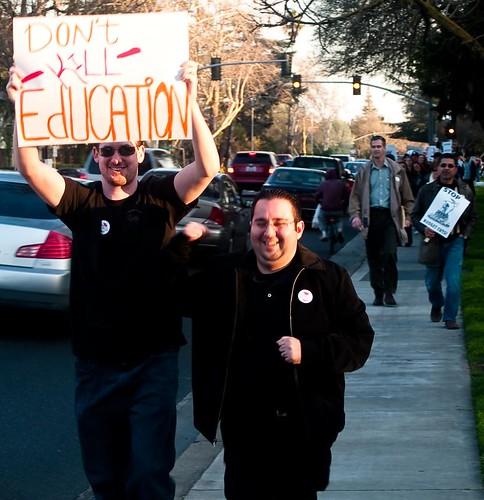 DON'T
KILL
EdUCATION
STOP